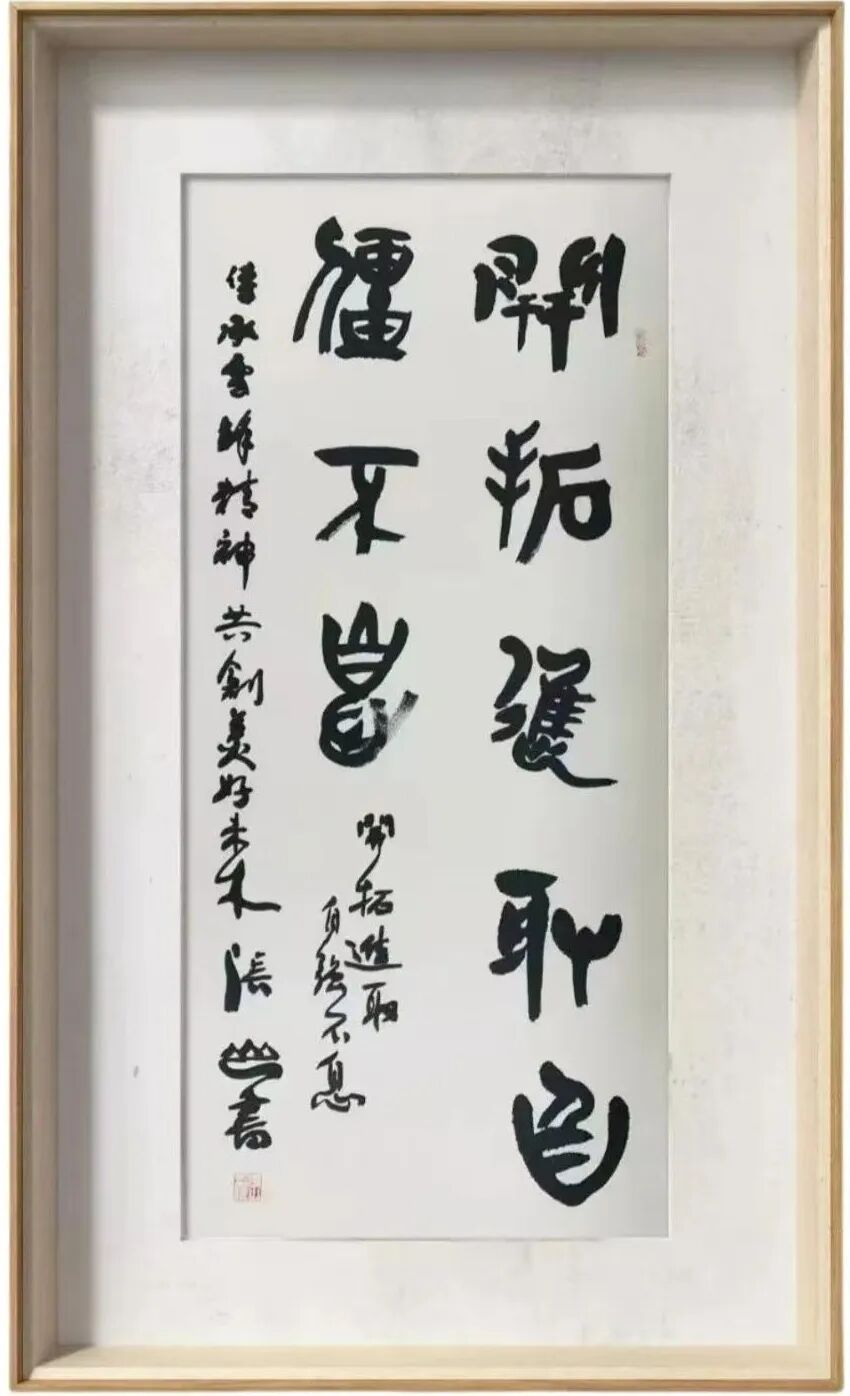 開拓進取自
彊不息
開拓進取
自強不息
傳承雷鋒精神共創美好未來 張山書